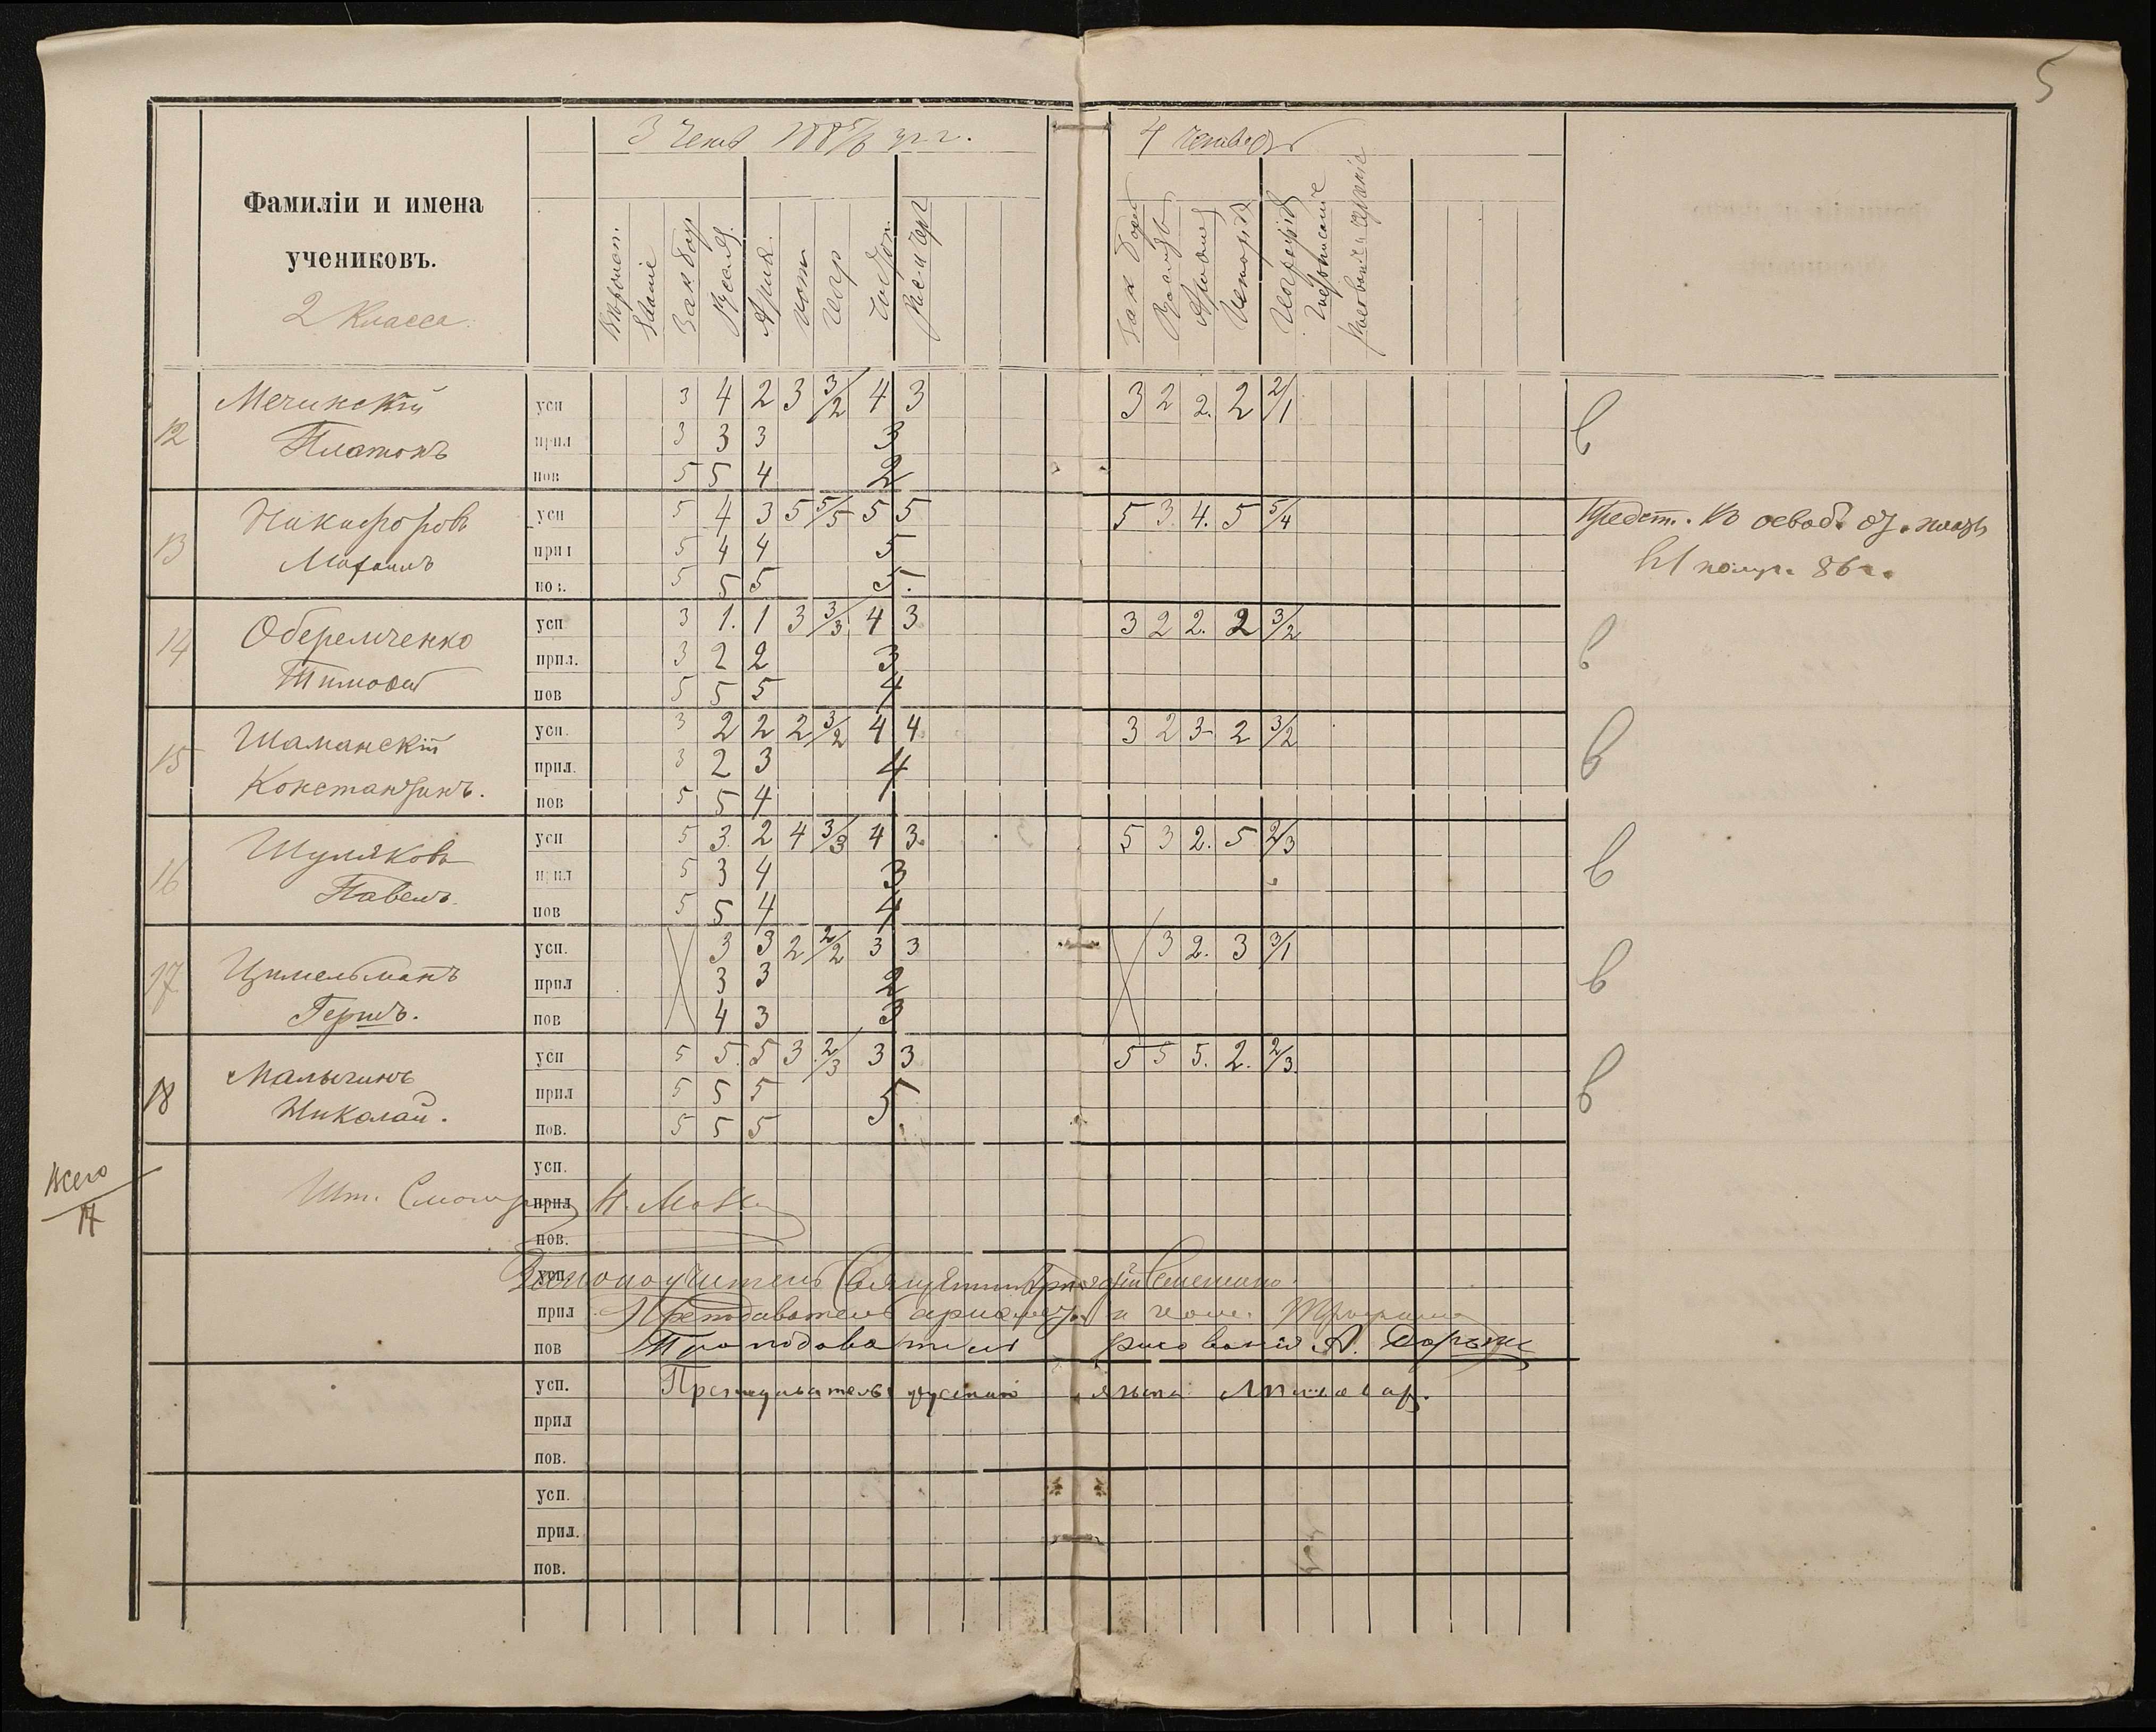 5
3 Четв 1885/6 уч г.
4 Четверть
Фамиліи и имена
учениковъ.
2 Класса
Зак Бож
Русск.
Ариѳ.
Ист
Геогр
Рис и чер
Зак Бож
Русск
Ариѳмет
Исторія
Географія
Чистописаніе
Рисованіе и черченіе
12
Мечинскій
Платонъ
усп 3 4 2 3 3/2 4 3 3 2 2. 2 2/1
прил 3 3 3 3
пов 5 5 4 2
в
13
Никифоровъ
Михаилъ
усп 5 4 3 5 5/5 5 5 5 3. 4. 5 5/4
прил 5 4 4 5
пов. 5 5 5 5.
Предст. къ освоб. от. платы
в 1 полуг. 86 г.
14
Оберемченко
Тимофей
усп 3 1. 1 3 3/3 4 3 3 2 2. 2 3/2
прил. 3 2 2 3
пов 5 5 5 4
в
15
Шаманскій
Константинъ.
усп. 3 2 2 2 3/2 4 4 3 2 3 2 3/2
прил. 3 2 3 4
пов 5 5 4
в
16
Шуляковъ
Павелъ.
усп 5 3. 2 4 3/3 4 3. 5 3 2. 5 2/3
прил 5 3 4 3
пов 5 5 4 4
в
17
Цимельманъ
Гершъ.
усп. 3 3 2 2/2 3 3 3 2. 3 3/1
прил 3 3 2
пов 4 3 3
в
18
Малычинъ
Николай.
усп 5 5. 5 3 2/3 3 3 5 5 5. 2. 2/3
прил 5 5 5 5
пов. 5 5 5
в
Всего
17
усп.
Шт. Смотр
прил
пов.
Законоучитель Священникъ
усп
прил Преподаватель ариѳмет. и геом.
пов Преподаватель рисованія А.
усп. Преподаватель русскаго языка
прил
пов.
усп.
прил.
пов.